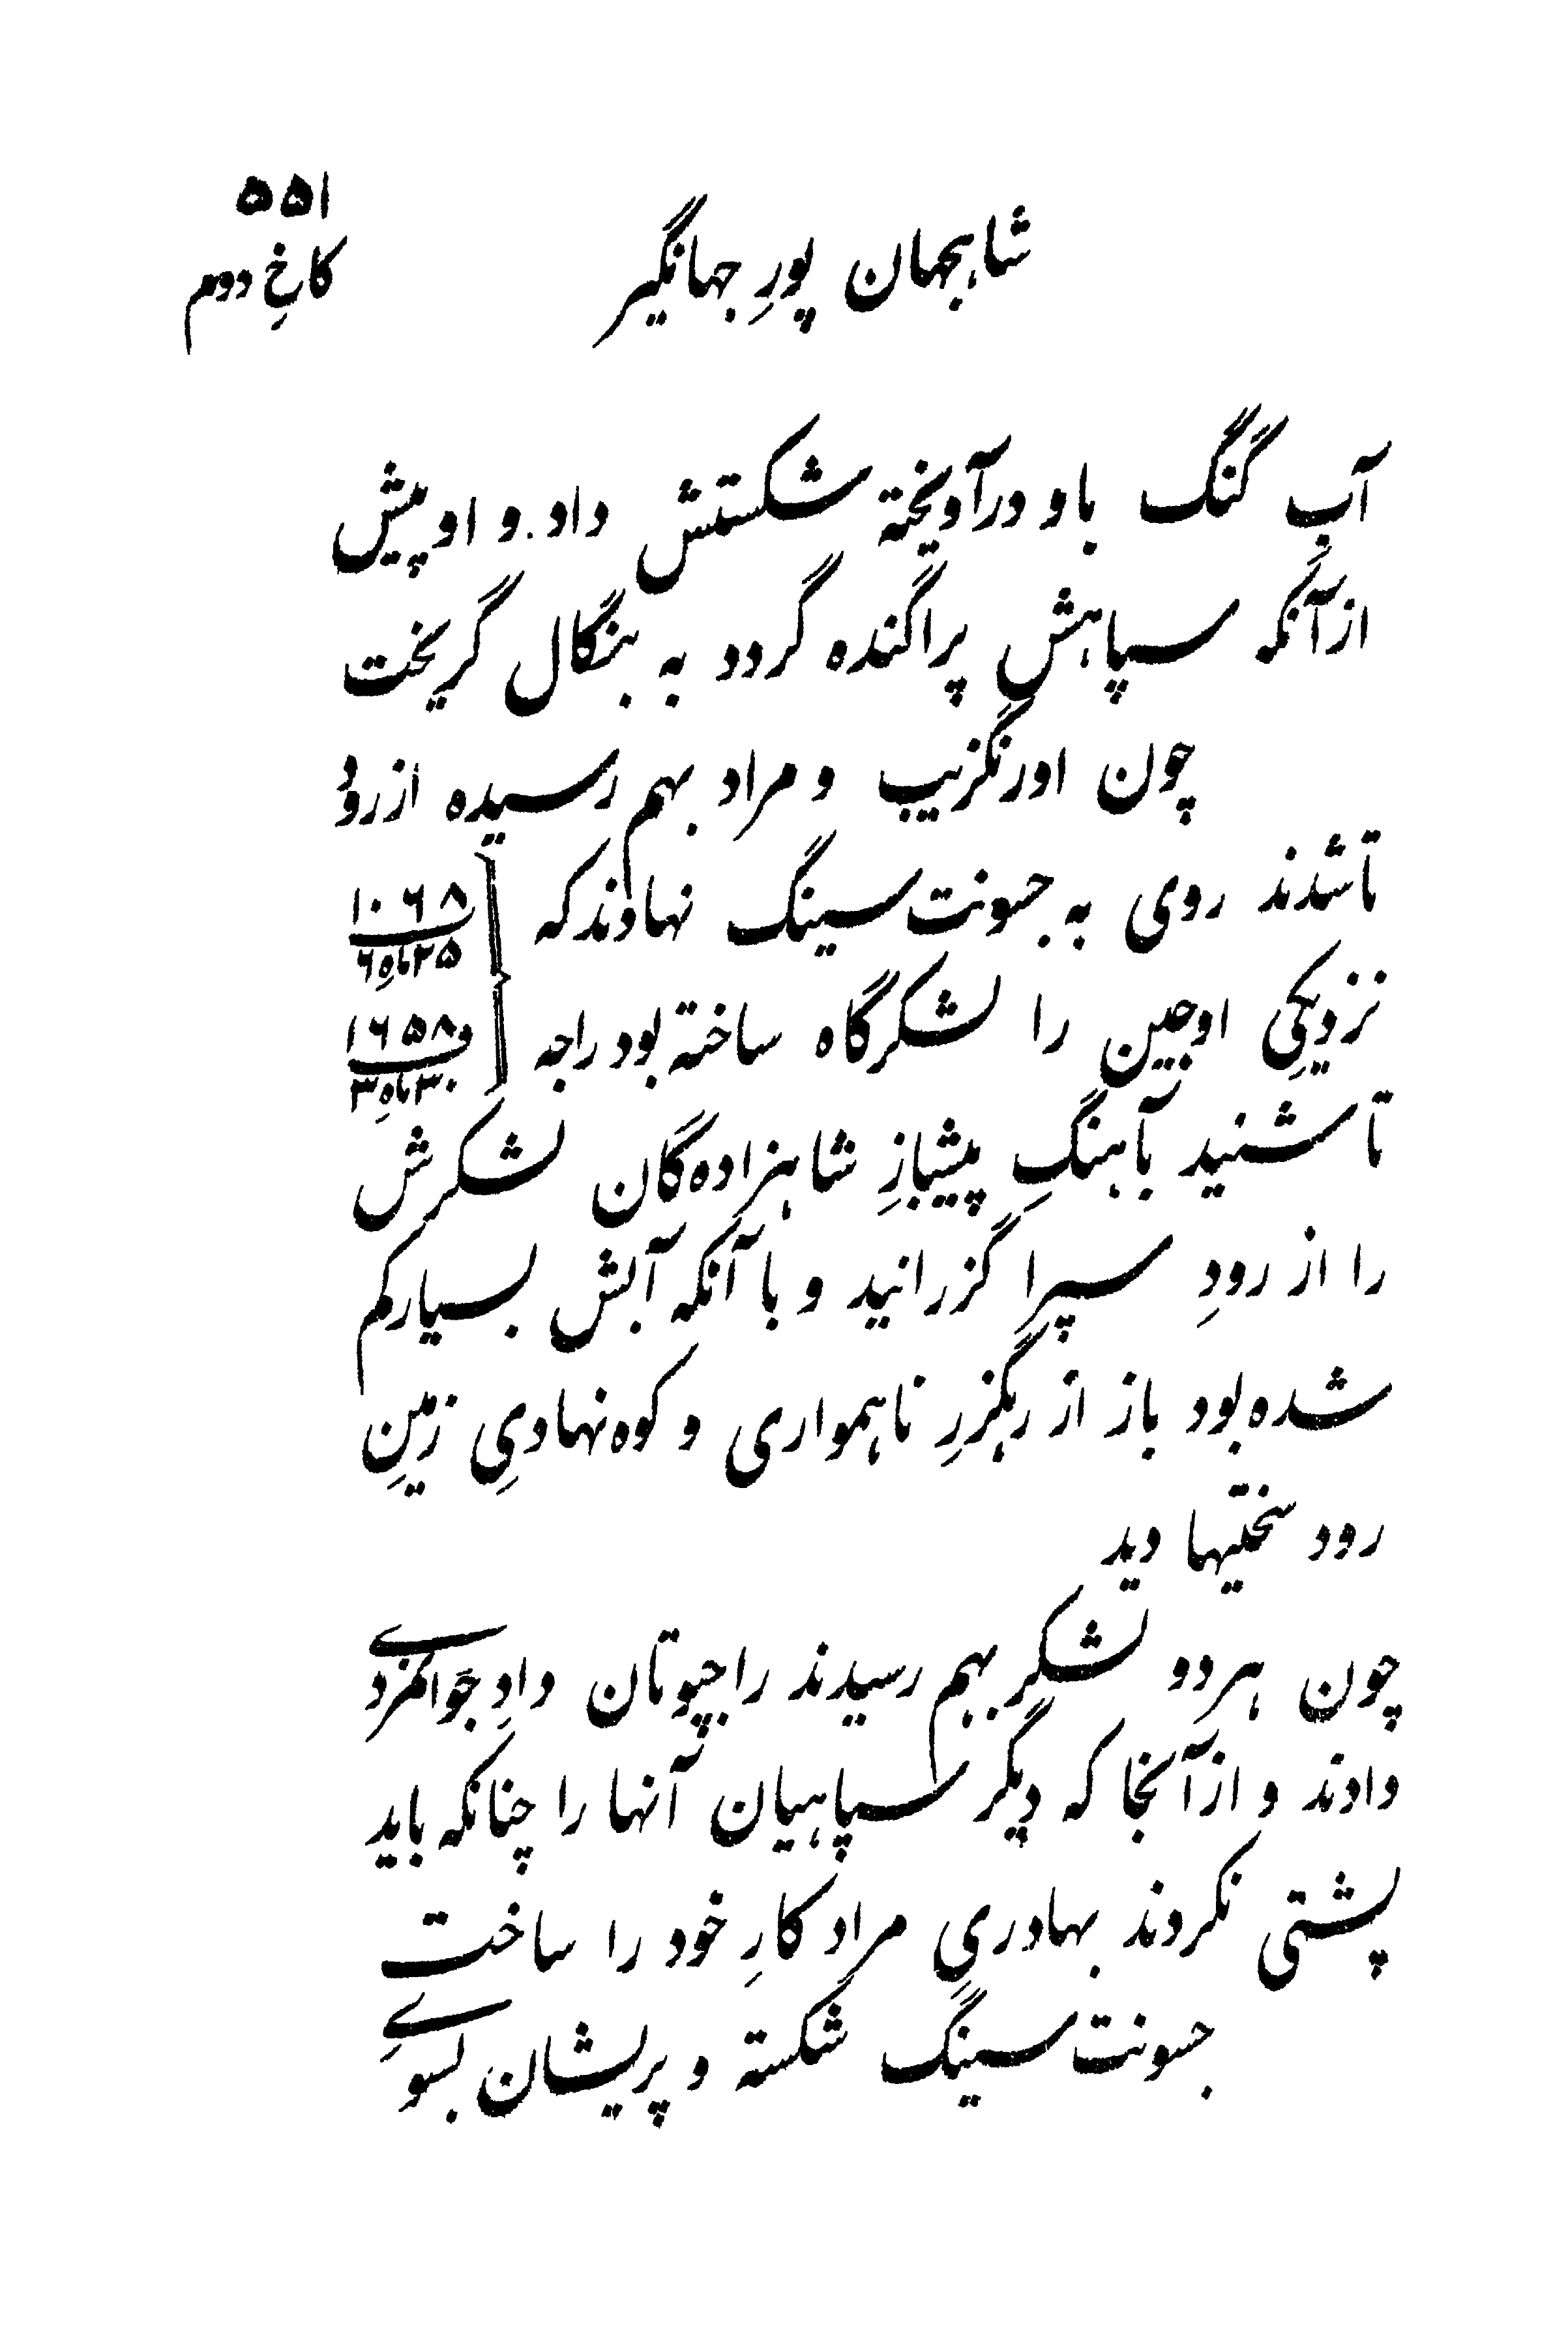 ۵۵۱
کاخِ دوم
شاہجہان پورِ جہانگیر
آبِ گنگ باو درآویختہ شکستش داد. و او پیش
ازآنکہ سپاہش پراگندہ گردد بہ بنگال گریخت
چون اورنگزیب و مراد بہم رسیدہ از رودِ
تاشدند روی بہ جسونت سینگ نہادند کہ
۱۰۶۸
۲۵ ماہِ ۶
نزدیکیِ اوجین را لشکرگاہ ساختہ بود راجہ
و ۱۶۵۸
۳۰ ماہِ ۳
تا شنید بآہنگِ پیشبازِ شاہزادہ گان لشکرش
را از رودِ سپرا گزرانید و با آنکہ آبش بسیار کم
شدہ بود باز از رہگزرِ ناہمواری و کوہ نہادیِ زمینِ
رود سختیہا دید
چون ہردو لشکر بہم رسیدند راجپوتان دادِ جوانمردی
دادند و ازآنجا کہ دیگر سپاہیان آنہا را چنانکہ باید
پشتی نکردند بہادریِ مراد کارِ خود را ساخت
جسونت سینگ شکستہ و پریشان بسویِ